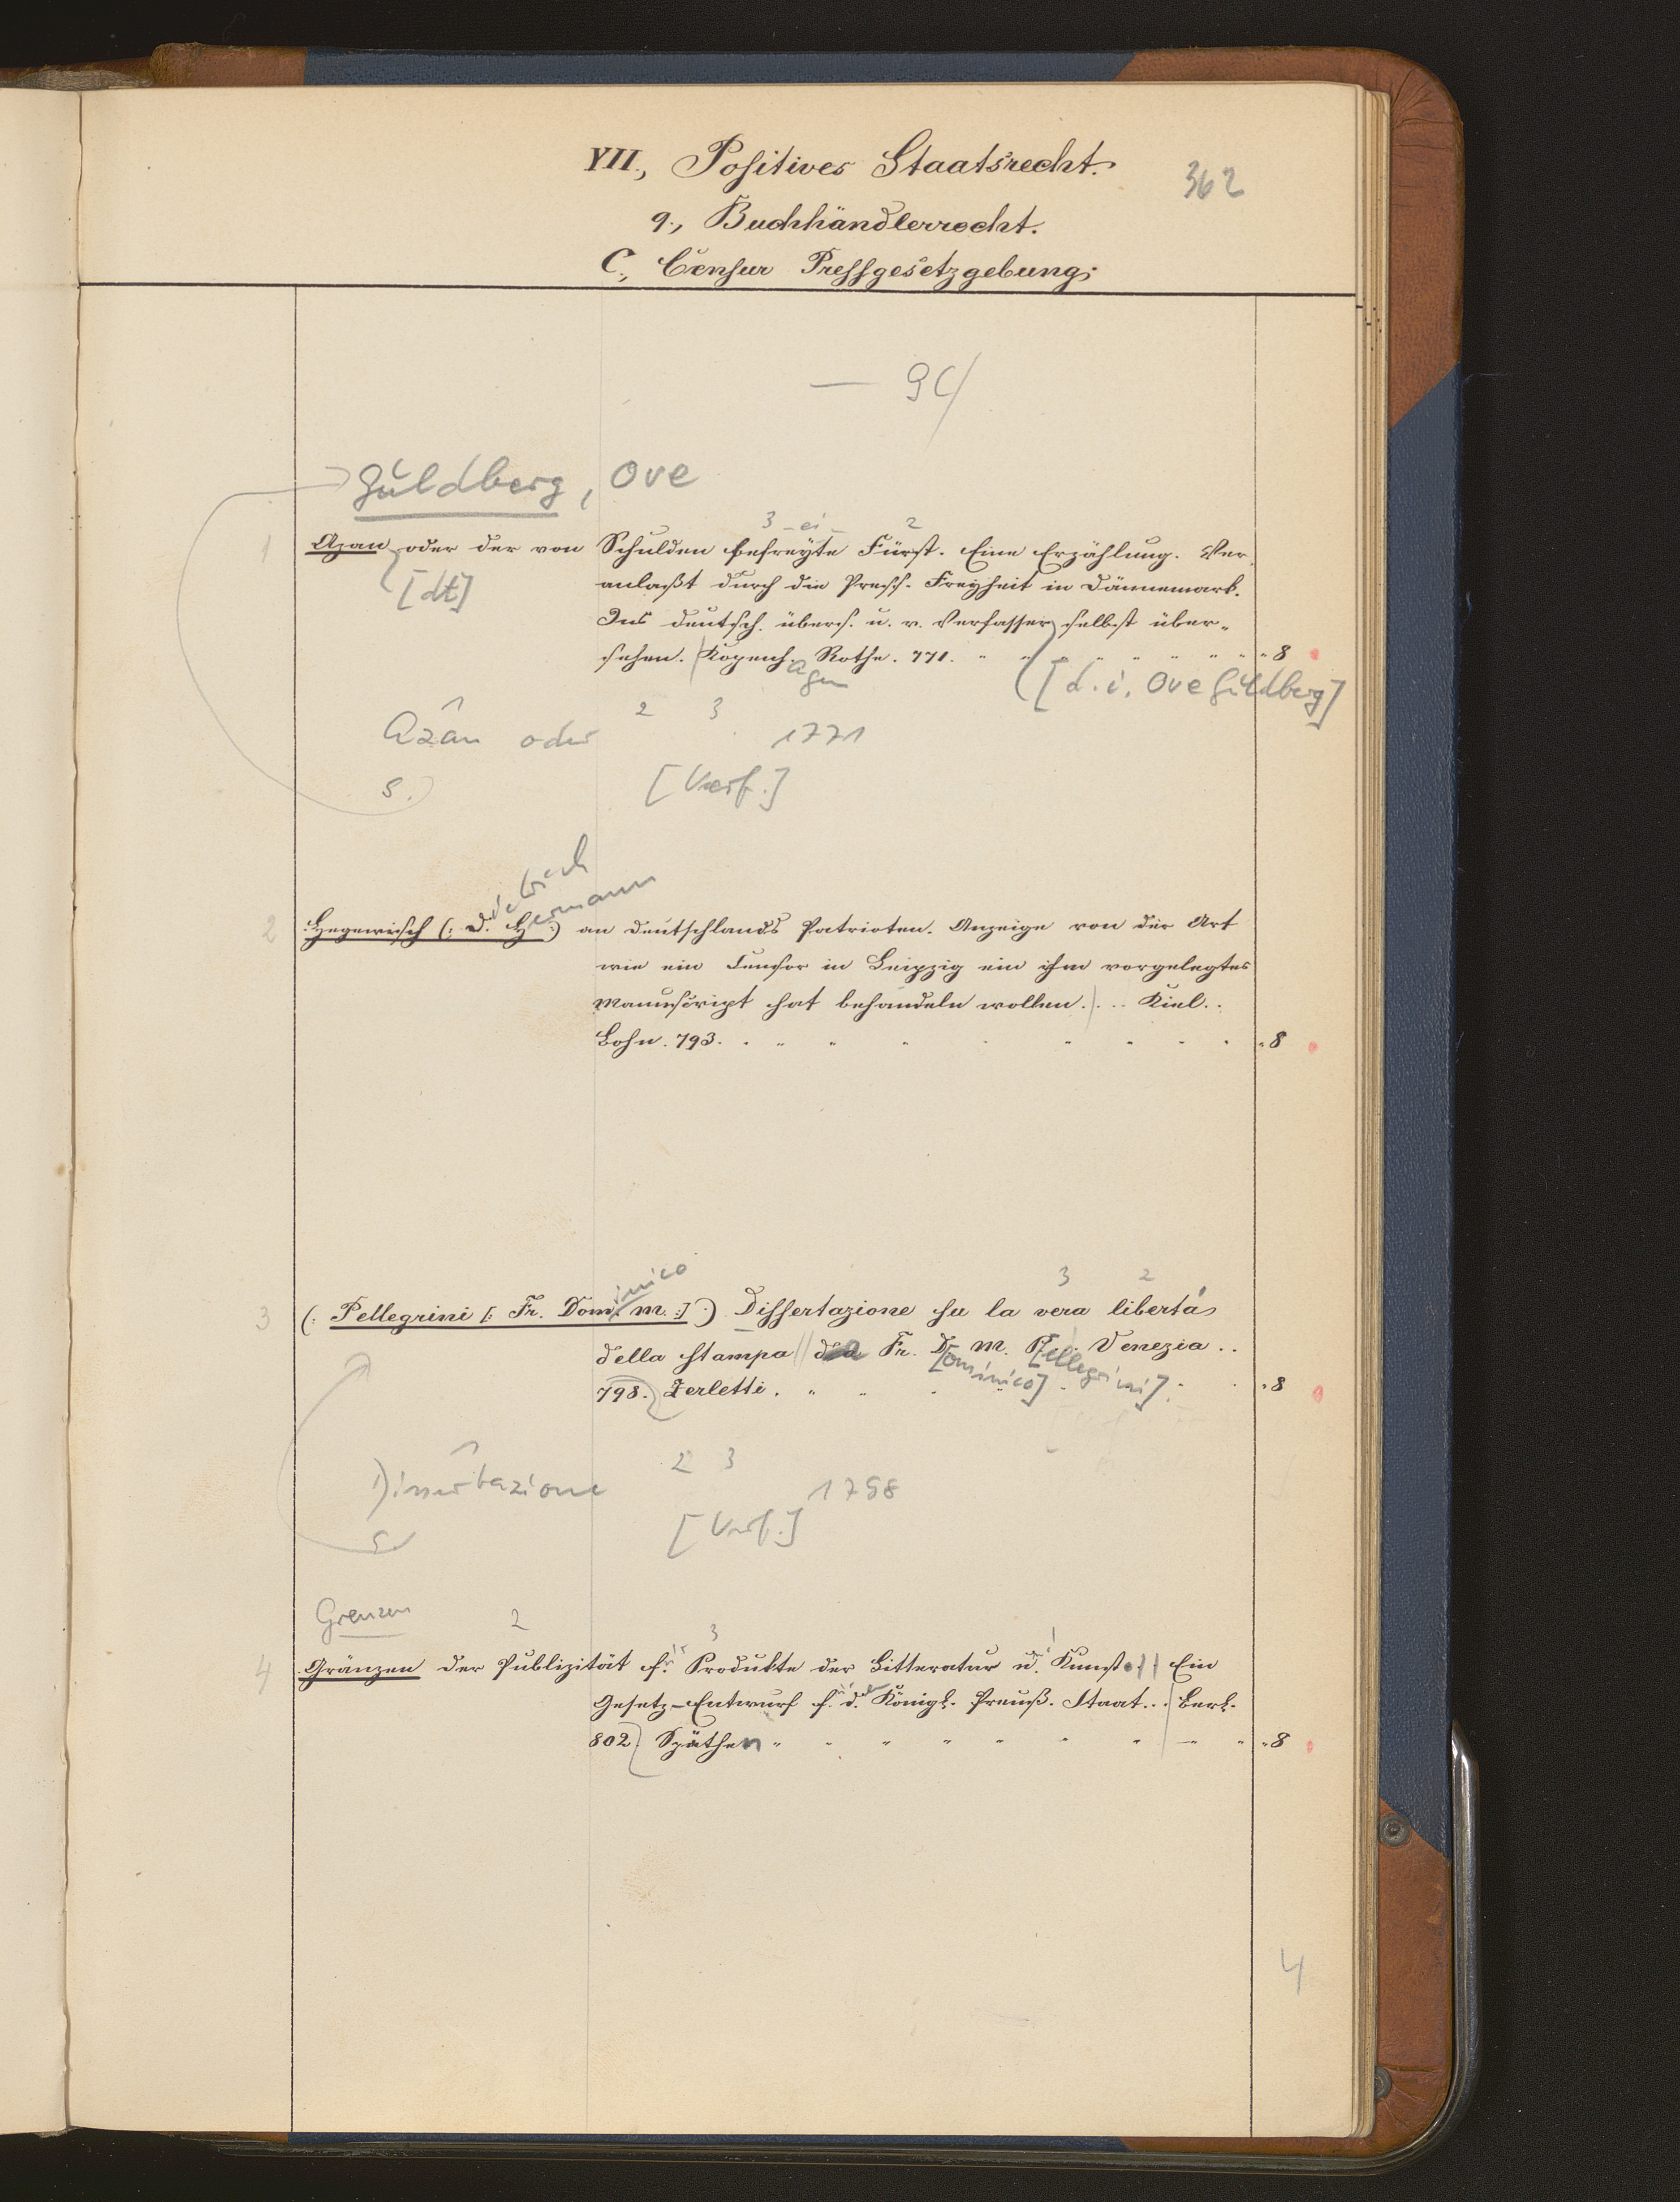 VII., Positives Staatsrecht.
362
9., Buchhändlerrecht.
C., Censur Pressgesetzgebung;
— 9C/
Guldberg, Ove
3 -ei- 2
1 Azan oder der von Schulden befreyte Fürst. Eine Erzählung. Ver
[dt]
anlaßt durch die Press. Freyheit in Dännemark.
Ins deutsch. übers. u. v. Verfasser selbst über-
sehen. Kopenh. Rothe. 771. 8
agen
[d. i. Ove Guldberg]
Azan oder 2 3 1771
s. [Verf.]
dietrich
ermann
2 Hegewisch (: D. H :) an Deutschlands Patrioten. Anzeige von der Art
wie ein Censor in Leipzig ein ihm vorgelegtes
Manuscript hat behandeln wollen. Kiel.
Bohn. 793. 8
inico 3 2
3 (: Pellegrini [: Fr. Dom. M. :] :) Dissertazione su la vera libertà
della stampa Fr. D. M. P. Venezia ..
[ominico] [ellegrini]
798. Zerletti. 8
Dissertazione 2 3 1798
s. [Verf.]
Grenzen 2 3
4 Gränzen der Publizität f. Produkte der Litteratur u. Kunst. Ein
Gesetz-Entwurf f. d. Königl. Preuß. Staat... Berl.
802. Späthen 8
4